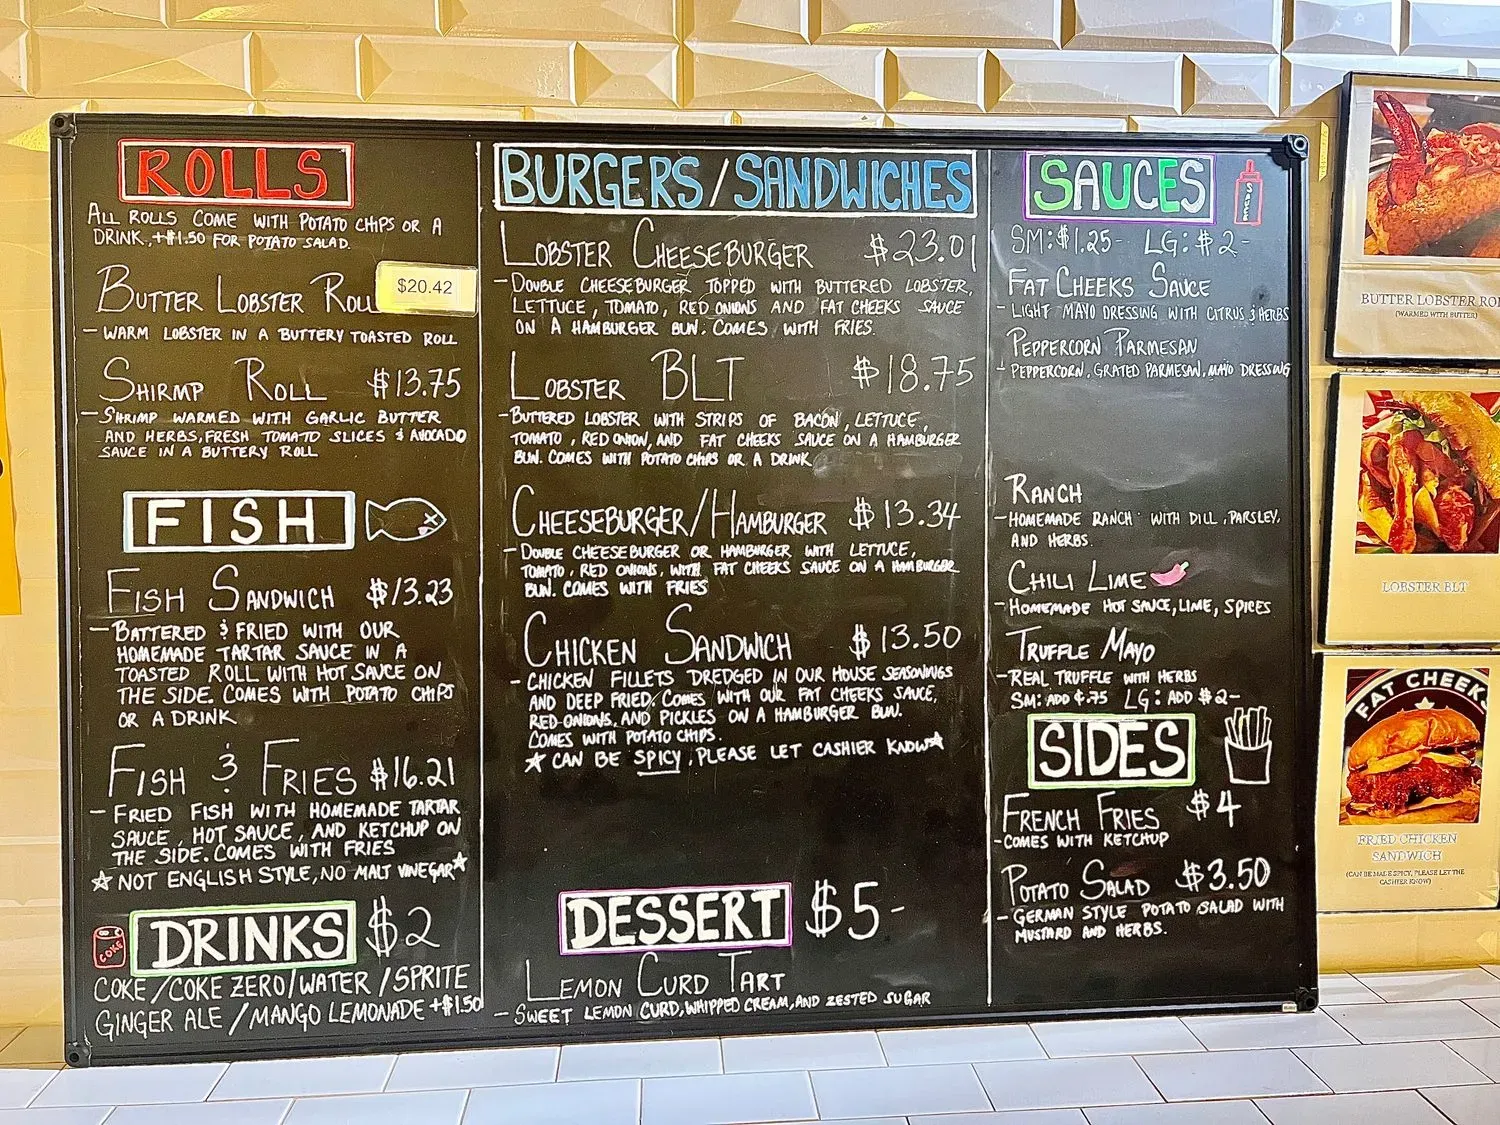 ROLLS
ALL ROLLS COME WITH POTATO CHIPS OR A
DRINK, +$1.50 FOR POTATO SALAD.
BUTTER LOBSTER ROLL $20.42
- WARM LOBSTER IN A BUTTERY TOASTED ROLL
SHIRMP ROLL $13.75
- SHRIMP WARMED WITH GARLIC BUTTER
AND HERBS, FRESH TOMATO SLICES & AVOCADO
SAUCE IN A BUTTERY ROLL
FISH
FISH SANDWICH $13.23
- BATTERED & FRIED WITH OUR
HOMEMADE TARTAR SAUCE IN A
TOASTED ROLL WITH HOT SAUCE ON
THE SIDE. COMES WITH POTATO CHIPS
OR A DRINK
FISH & FRIES $16.21
- FRIED FISH WITH HOMEMADE TARTAR
SAUCE, HOT SAUCE, AND KETCHUP ON
THE SIDE. COMES WITH FRIES
☆ NOT ENGLISH STYLE, NO MALT VINEGAR ☆
COKE
DRINKS $2
COKE / COKE ZERO / WATER / SPRITE
GINGER ALE / MANGO LEMONADE +$1.50
BURGERS / SANDWICHES
LOBSTER CHEESEBURGER $23.01
- DOUBLE CHEESEBURGER TOPPED WITH BUTTERED LOBSTER,
LETTUCE, TOMATO, RED ONIONS AND FAT CHEEKS SAUCE
ON A HAMBURGER BUN. COMES WITH FRIES.
LOBSTER BLT $18.75
- BUTTERED LOBSTER WITH STRIPS OF BACON, LETTUCE,
TOMATO, RED ONION, AND FAT CHEEKS SAUCE ON A HAMBURGER
BUN. COMES WITH POTATO CHIPS OR A DRINK
CHEESEBURGER/HAMBURGER $13.34
- DOUBLE CHEESEBURGER OR HAMBURGER WITH LETTUCE,
TOMATO, RED ONIONS, WITH FAT CHEEKS SAUCE ON A HAMBURGER
BUN. COMES WITH FRIES
CHICKEN SANDWICH $13.50
- CHICKEN FILLETS DREDGED IN OUR HOUSE SEASONINGS
AND DEEP FRIED. COMES WITH OUR FAT CHEEKS SAUCE,
RED ONIONS, AND PICKLES ON A HAMBURGER BUN.
COMES WITH POTATO CHIPS.
☆ CAN BE SPICY, PLEASE LET CASHIER KNOW ☆
DESSERT $5-
LEMON CURD TART
- SWEET LEMON CURD, WHIPPED CREAM, AND ZESTED SUGAR
SAUCES
SAUCE
SM: $1.25- LG: $2-
FAT CHEEKS SAUCE
- LIGHT MAYO DRESSING WITH CITRUS & HERBS
PEPPERCORN PARMESAN
- PEPPERCORN, GRATED PARMESAN, MAYO DRESSING
RANCH
- HOMEMADE RANCH WITH DILL, PARSLEY,
AND HERBS.
CHILI LIME
- HOMEMADE HOT SAUCE, LIME, SPICES
TRUFFLE MAYO
- REAL TRUFFLE WITH HERBS
SM: ADD $.75 LG: ADD $2-
SIDES
FRENCH FRIES $4
- COMES WITH KETCHUP
POTATO SALAD $3.50
- GERMAN STYLE POTATO SALAD WITH
MUSTARD AND HERBS.
BUTTER LOBSTER ROL
(WARMED WITH BUTTER)
LOBSTER BLT
FAT CHEEKS
FRIED CHICKEN
SANDWICH
(CAN BE MADE SPICY, PLEASE LET THE
CASHIER KNOW)